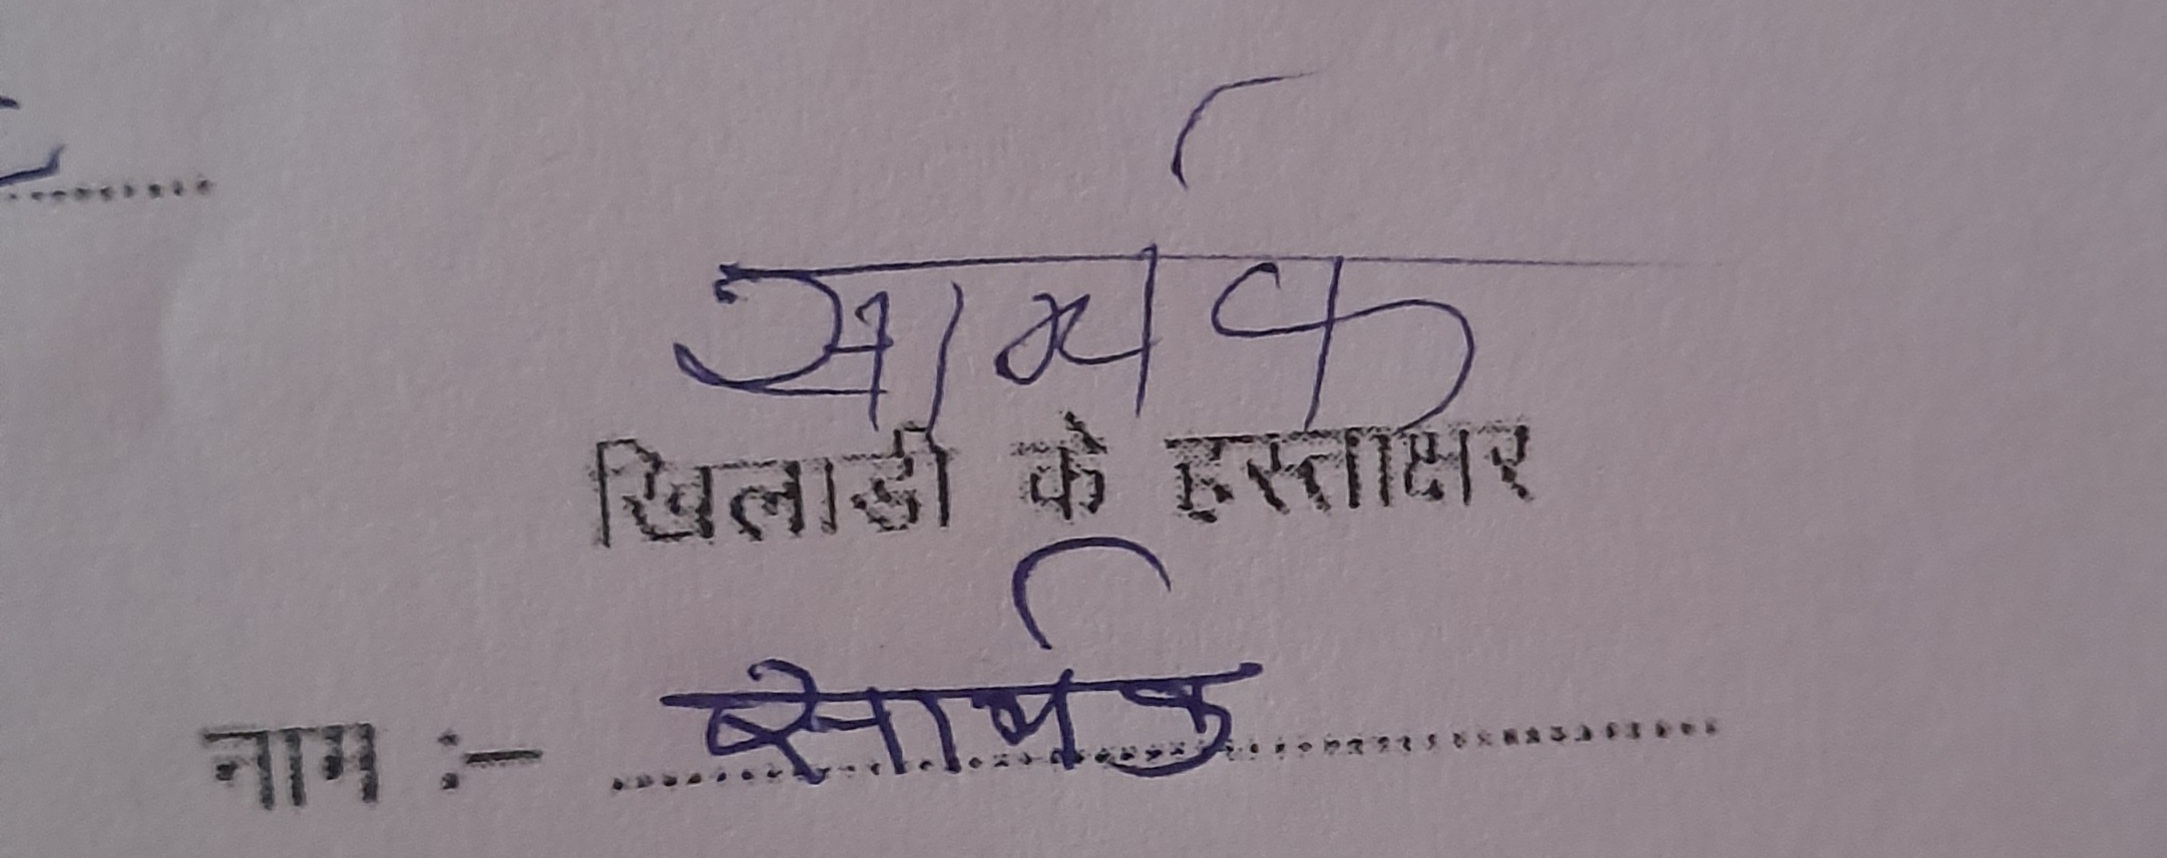 सार्थक
खिलाडी के हस्ताक्षर
नाम :- सार्थक